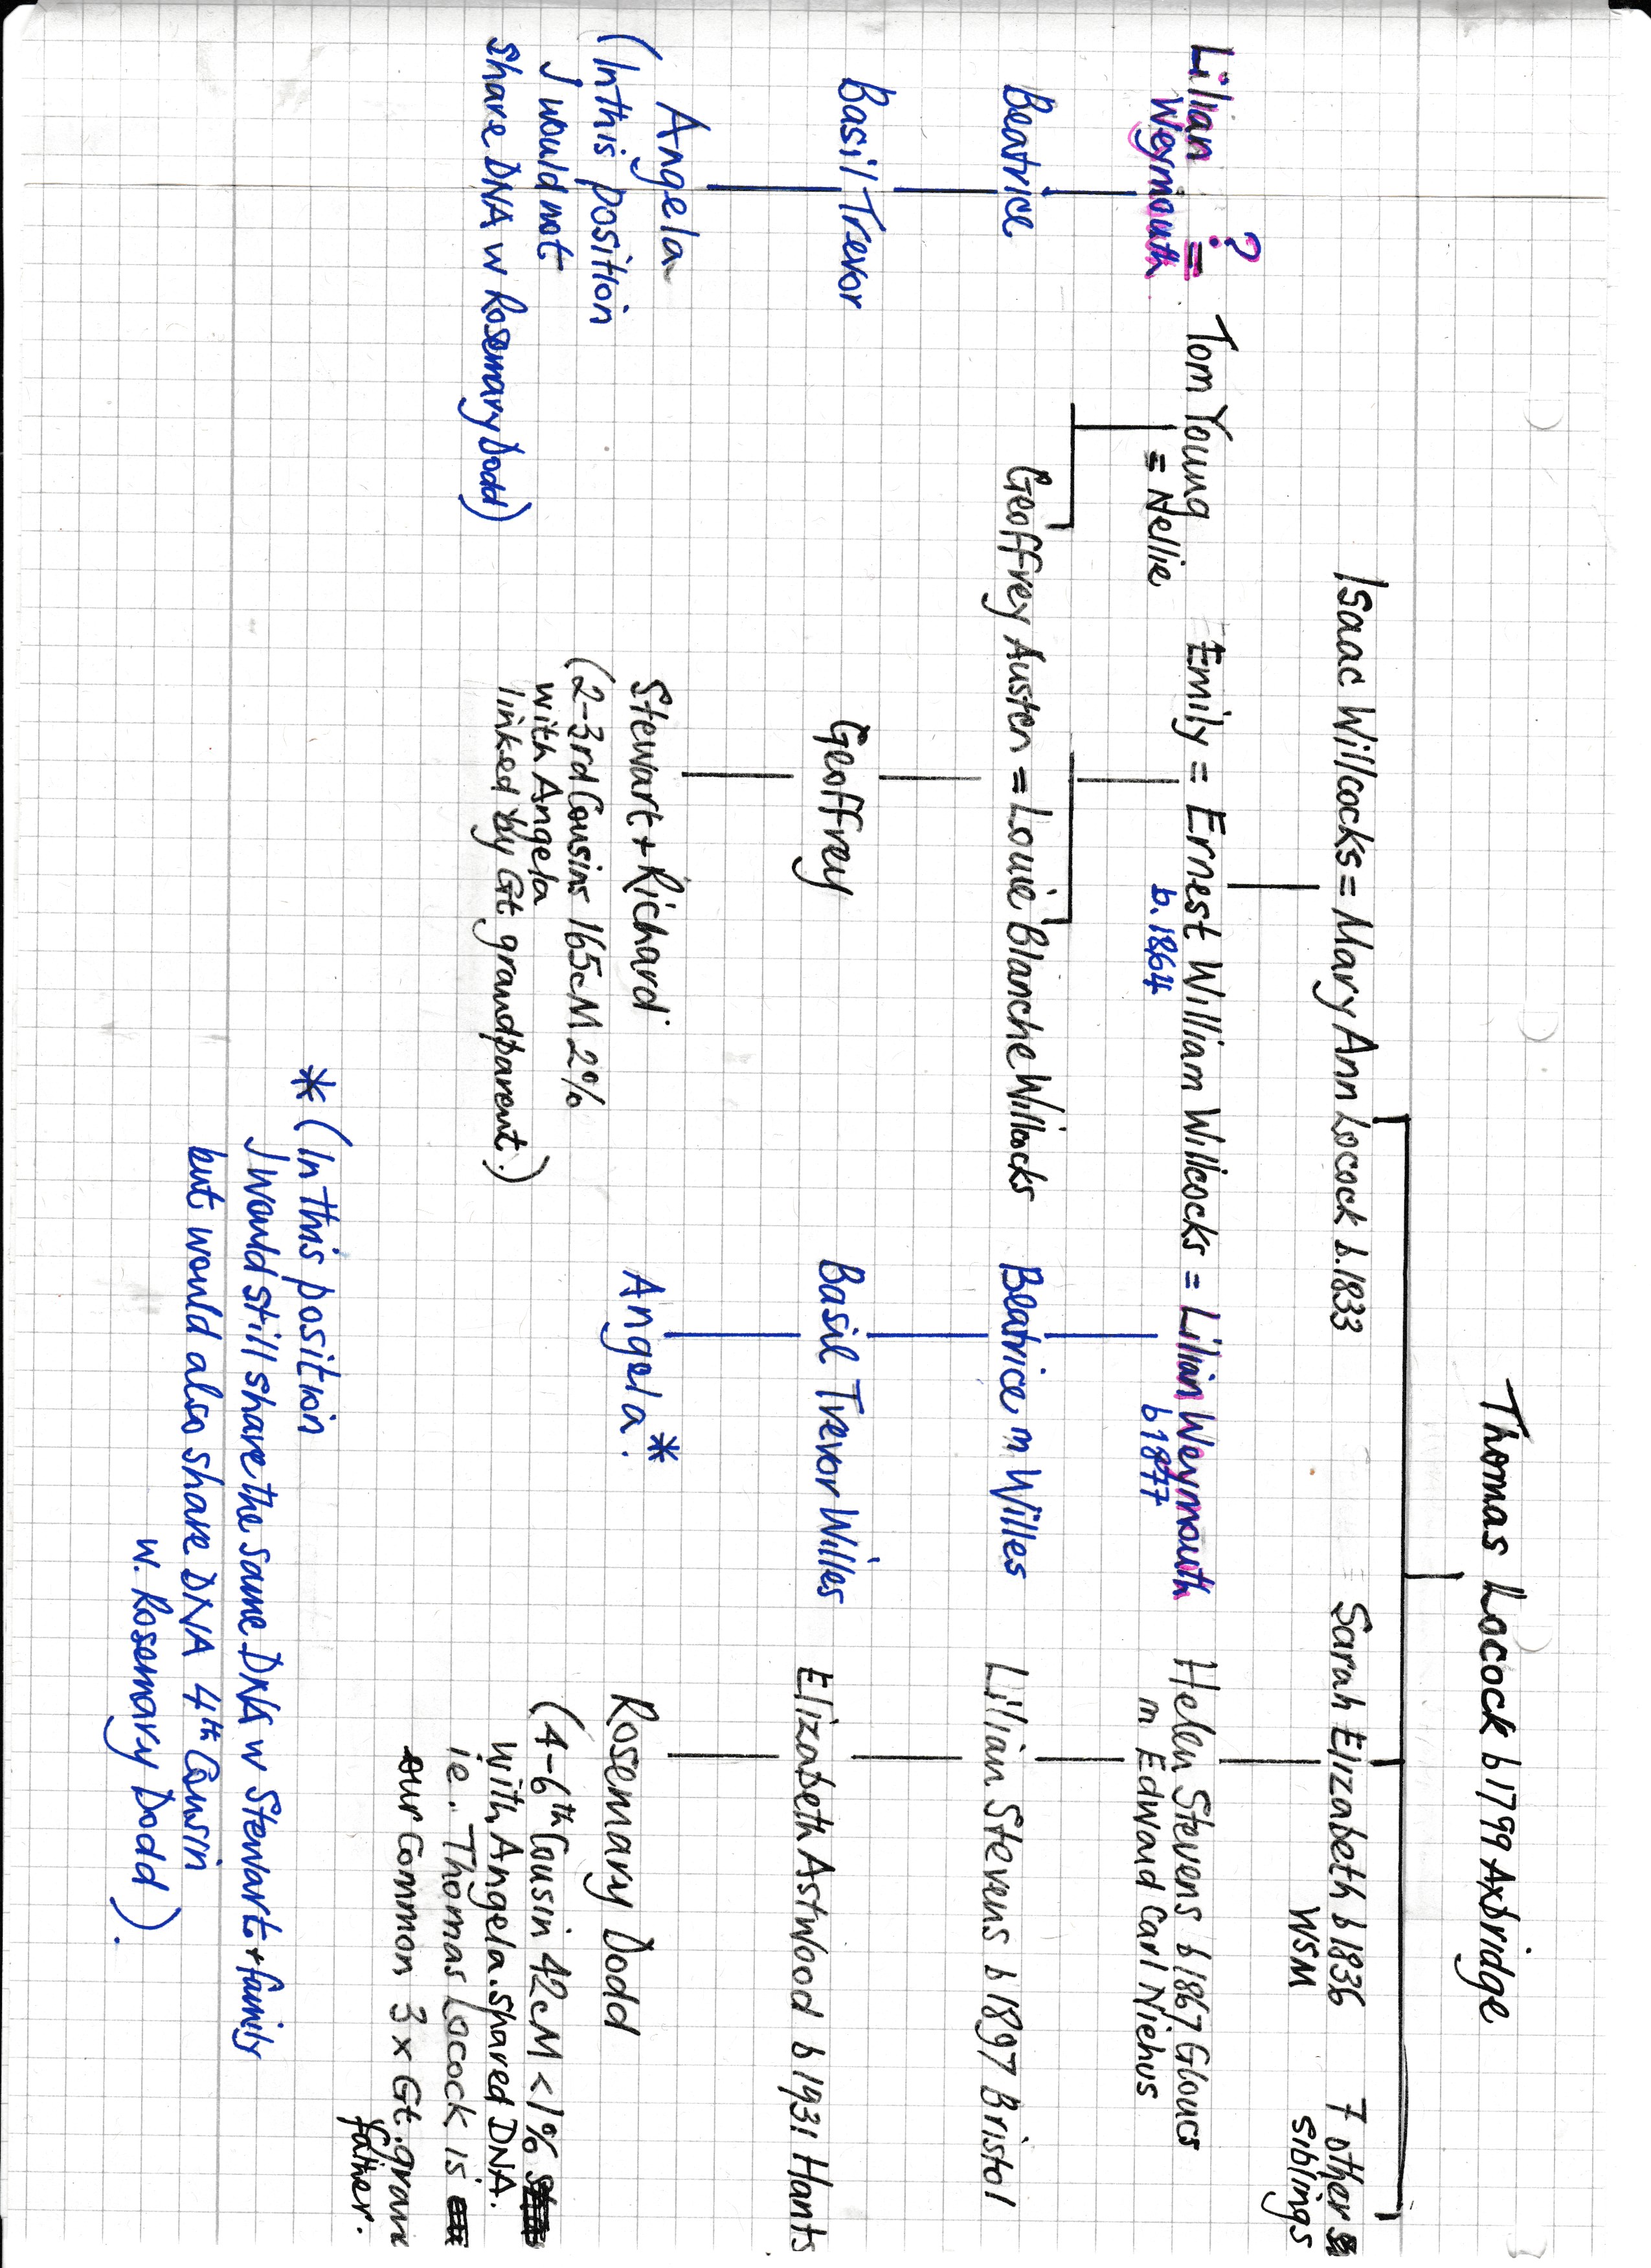 Thomas Locock b1799 Axbridge
Isaac Willcocks = Mary Ann Locock b.1833
= Sarah Elizabeth b1836
WSM
7 other
siblings
?
Lilian =
Weymouth
Tom Young
= Nellie
Emily = Ernest William Willcocks = Lilian Weymouth
b.1864
b1877
Helen Stevens b1867 Gloucs
m Edward Carl Niehus
Beatrice
Geoffrey Austen = Louie Blanche Willcocks
Beatrice m Willes
Lilian Stevens b1897 Bristol
Basil Trevor
Geoffrey
Basil Trevor Willes
Elizabeth Astwood b1931 Hants
Angela
(In this position
I would not
share DNA w Rosemary Dodd)
Stewart + Richard
(2-3rd Cousins 165cM 2%
with Angela
linked by Gt grandparent.)
Angela. *
Rosemary Dodd
(4-6th Cousin 42cM <1%
with Angela. shared DNA.
ie. Thomas Locock is
our Common 3x Gt. grand
father.
* (In this position
I would still share the same DNA w Stewart + family
but would also share DNA 4th Cousin
w. Rosemary Dodd).